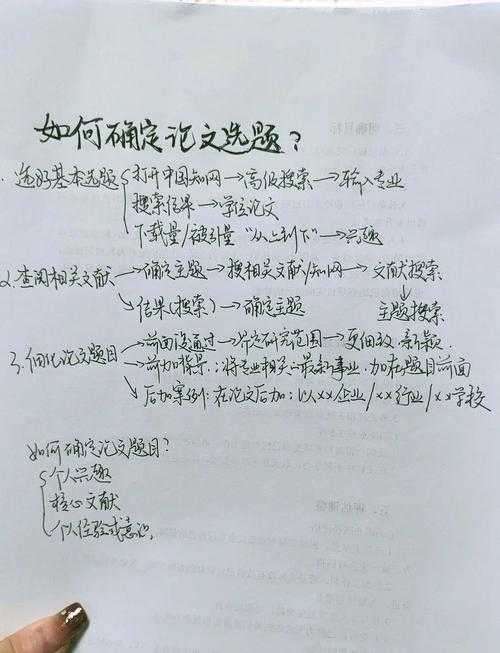 如何确定论文选题?
1. 选好基本选题 打开中国知网→高级搜索→输入专业
搜索结果→学位论文
下载量/被引量"从上到下"→兴趣
2. 查阅相关文献→确定主题→搜相关文献/知网→文献搜索
↓
结果(搜索)→确定主题 主题搜索
3. 细化论文题目→前面没通过→界定研究范围→更细致 新颖.
→前加背景:将专业相关 最新事业,加在题目前面
→后加案例:在论文后加:以xx企业/xx行业/xx学校
如何确定论文题目?
个人兴趣
核心文献
个人经验或意识,